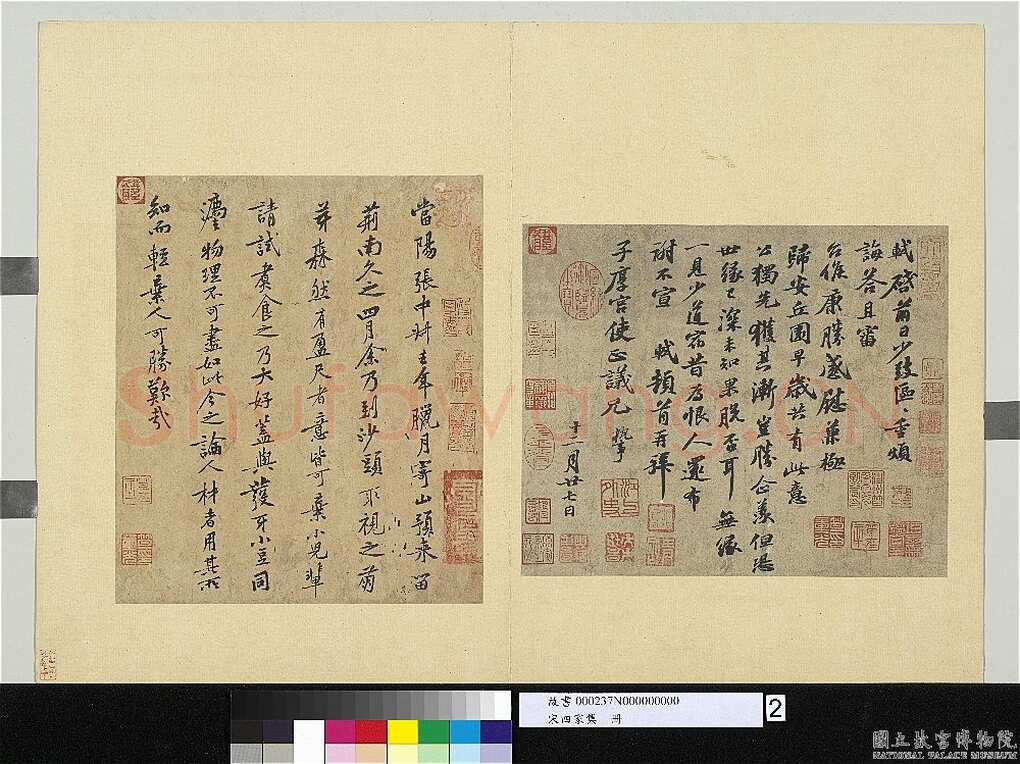 軾啓前日少致區、重煩
誨答且審
台候康勝感慰兼極
歸安丘園早歲共有此意
公獨先獲其漸豈勝企羨但恐
世緣已深未知果脫否耳無緣
一見少道宿昔為恨人還布
謝不宣 軾頓首再拜
子厚宮使正議兄執事
十二月廿七日
當陽張中叔去年臘月寄山預來留
荊南久之四月余乃到沙頭取視之萌
芽森然有盈尺者意皆可棄小兒輩
請試煮食之乃大好蓋與發牙小豆同
法物理不可盡如此今之論人材者用其所
知而輕棄人可勝歎哉
Shufawang.CN
故書000237N000000000
宋四家集 冊
2
國立故宮博物院
NATIONAL PALACE MUSEUM